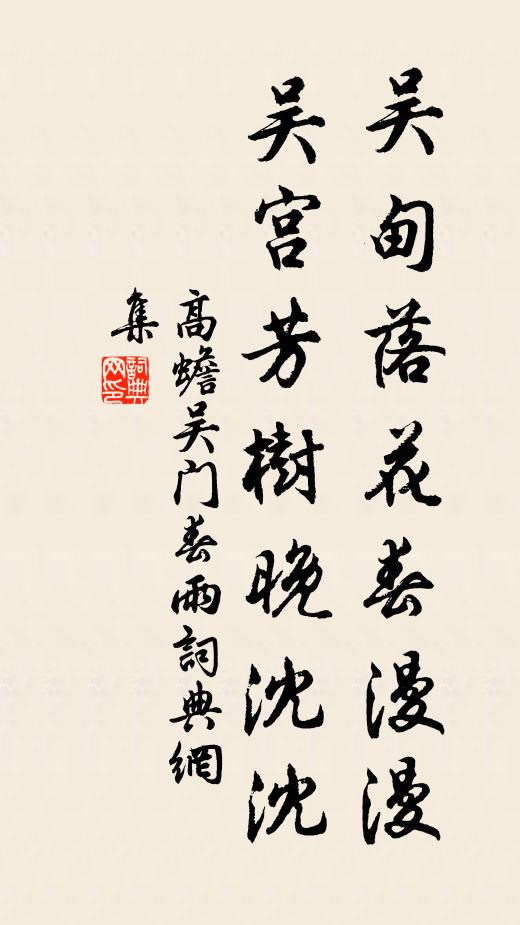 吴甸落花春漫漫
吴宫芳樹晚沈沈
高蟾吴门春雨詞典網
集
詞典网印